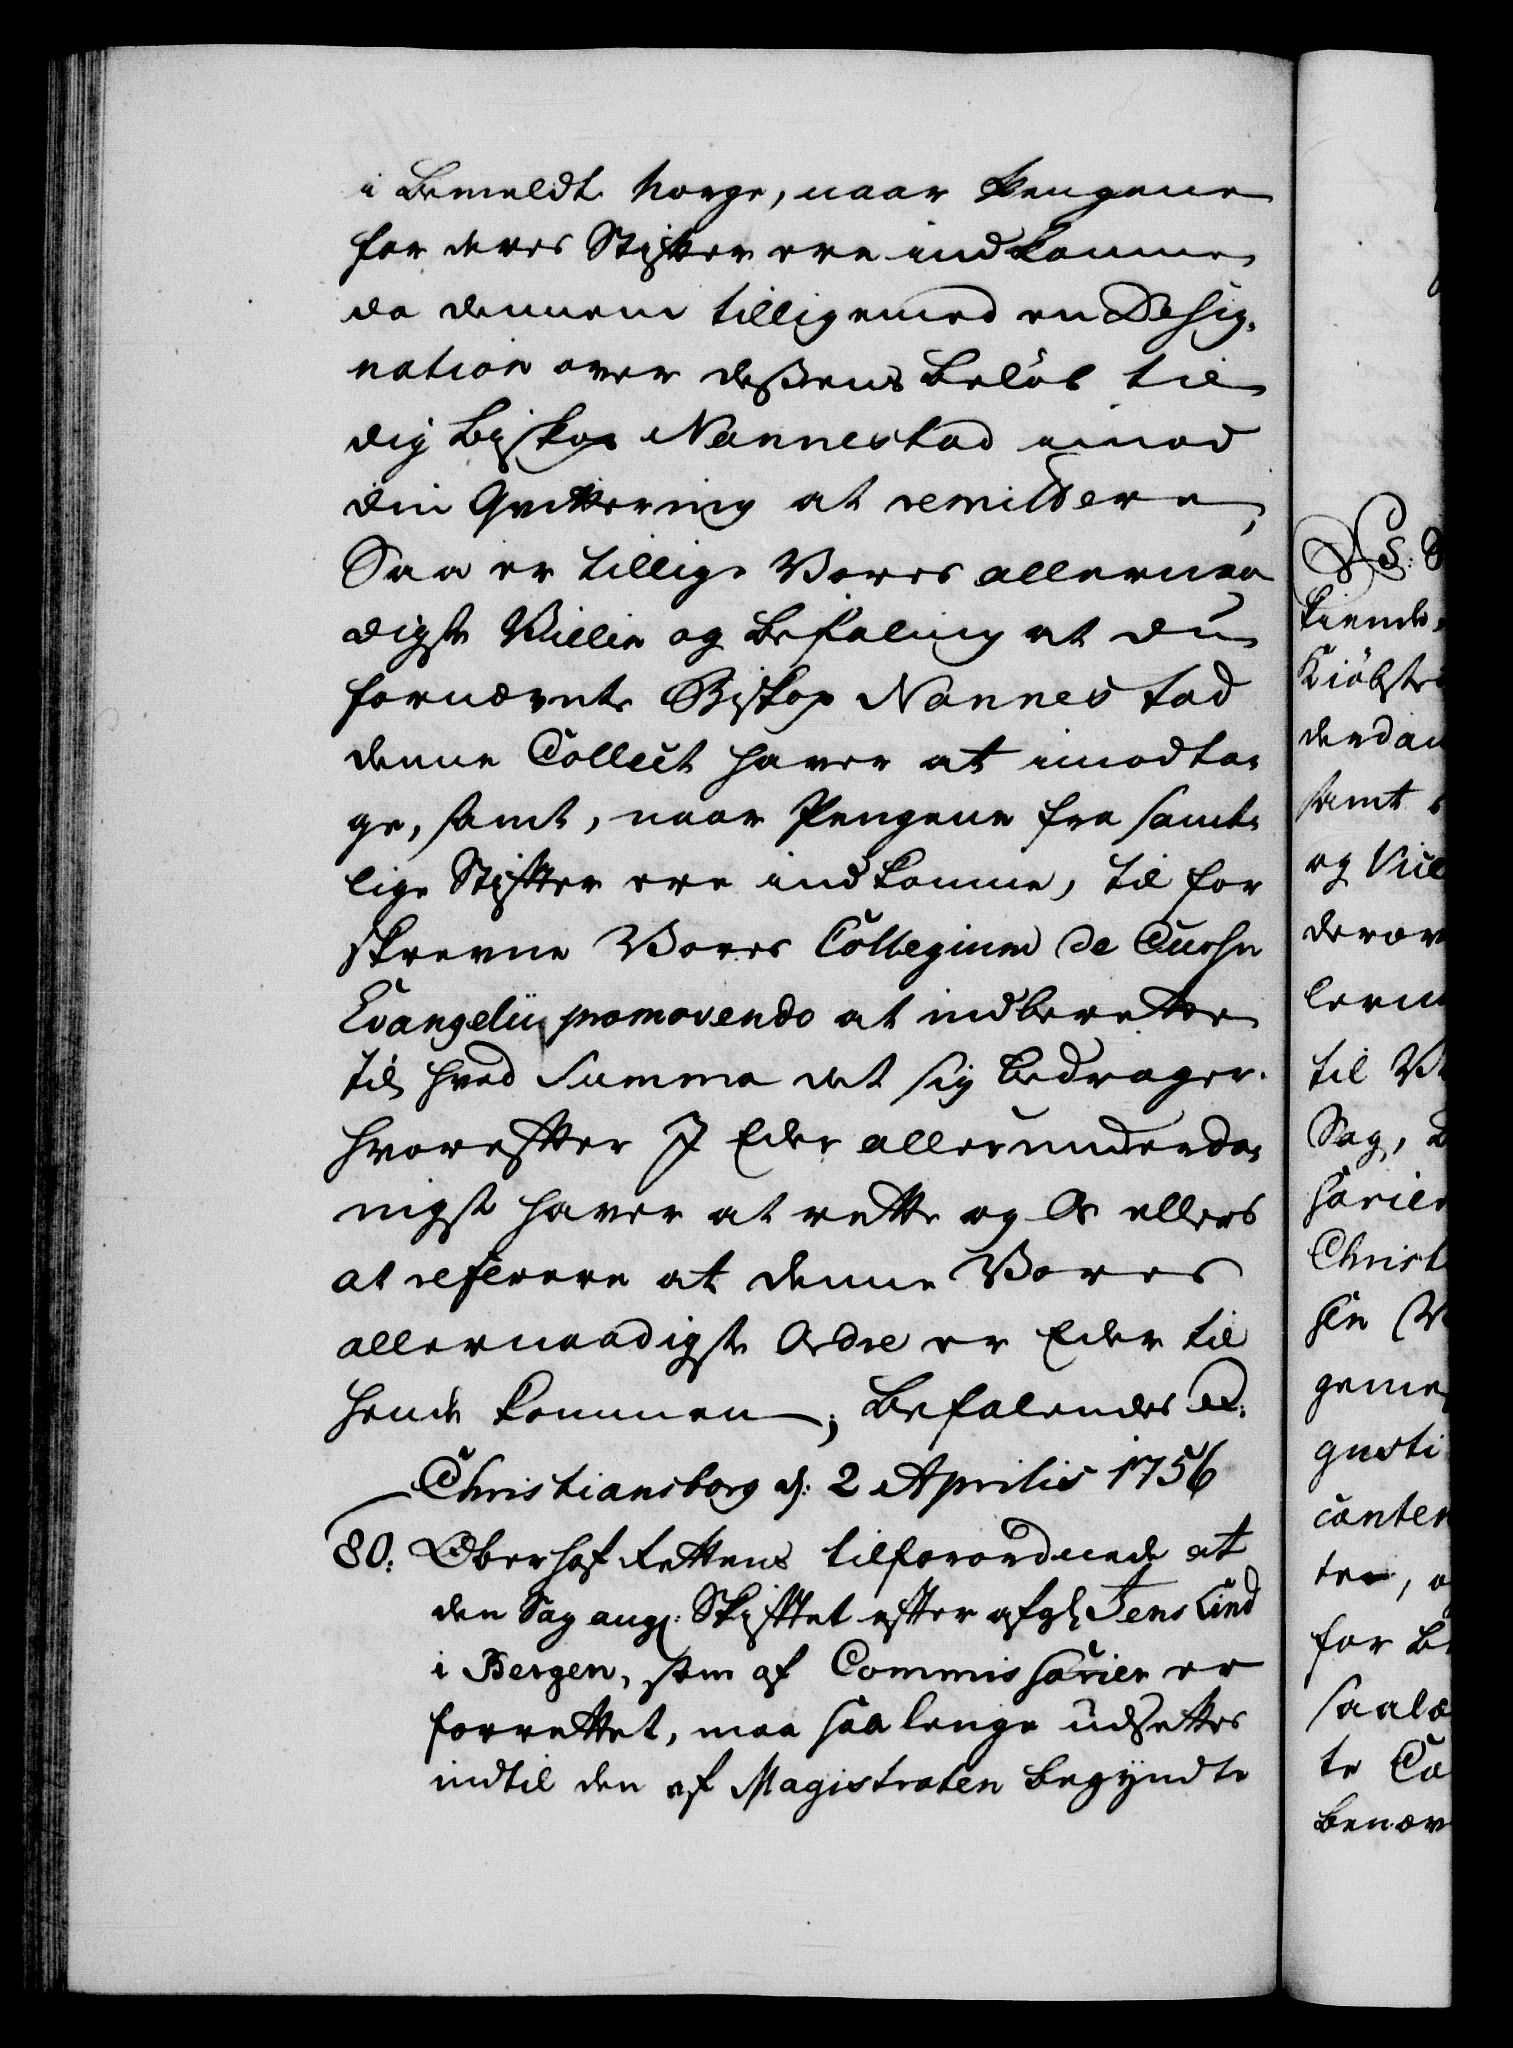 i bemeldte Norge, naar Pengene
for deres Stifter ere indkomne,
da dennem tilligemed en Desig-
nation over deßens Beløb til
dig Biskop Nannestad imod
din Qvittering at remittere,
Saa er tillige Vores allernaa
digste Villie og Befaling at du
fornævnte Biskop Nannestad
denne Collect haver at imodta-
ge, samt, naar Pengene fra samt-
lige Stifter ere indkomne, til for
skrevne Vores Collegium de Cursu
Evangelii promovendo at indberette
til hvad Summa det sig bedrager.
hvorefter I Eder allerunderda-
nigst haver at rette og Os ellers
at referere at denne Vores
allernaadigste Ordre er Eder til
hende kommen; Befalendes etc:
Christiansborg d: 2 Aprilis 1756
80: Oberhof Rettens tilforordnede at
den Sag ang: Skifttet efter afg: Jens Lind
i Bergen, som af Commissarier er
forrettet, maa saa lenge udsettes
indtil den af Magistraten begyndte
Ks: S
kiende
Kiöbste
derdan
samt
og Vill
derov
lern
til V
Sag, 
sarier
Christ
sen
geme
gusti
conten
ter, o
for B
saalæ
te Co
benæv